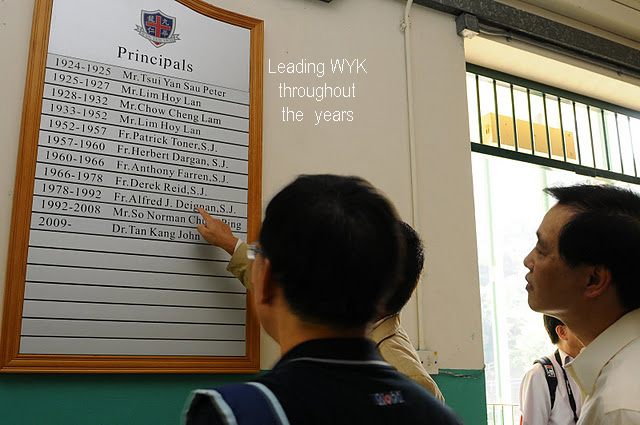 Principals
1924-1925 Mr.Tsui Yan Sau Peter
1925-1927 Mr.Lim Hoy Lan
1928-1932 Mr.Chow Cheng Lam
1933-1952 Mr.Lim Hoy Lan
1952-1957 Fr.Patrick Toner,S.J.
1957-1960 Fr.Herbert Dargan, S.J.
1960-1966 Fr.Anthony Farren,S.J.
1966-1978 Fr.Derek Reid,S.J.
1978-1992 Fr.Alfred J. Deignan,S.J.
1992-2008 Mr.So Norman
2009- Dr.Tan Kang John
Leading WYK
throughout
the years